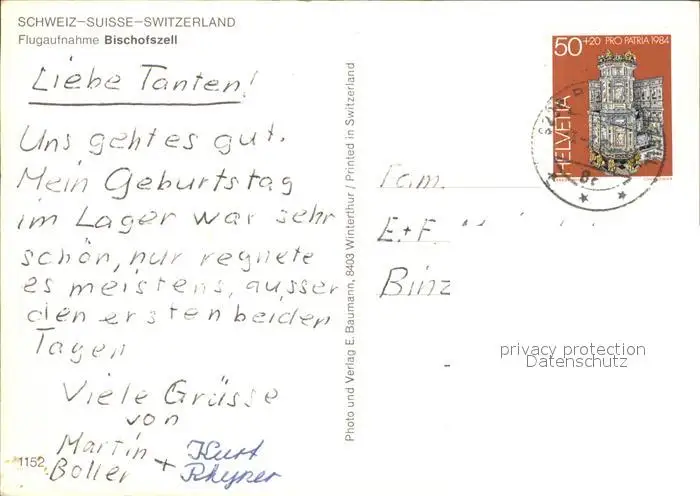 SCHWEIZ–SUISSE–SWITZERLAND
Flugaufnahme Bischofszell
Liebe Tanten!
Uns geht es gut.
Mein Geburtstag
im Lager war sehr
schön, nur regnete
es meistens, ausser
den ersten beiden
Tagen
Viele Grüsse
von
Martin
Boller + Kurt
Rhyner
1152
Photo und Verlag E. Baumann, 8403 Winterthur / Printed in Switzerland
50+20 PRO PATRIA 1984
HELVETIA
Fam.
E+F
Binz
privacy protection
Datenschutz